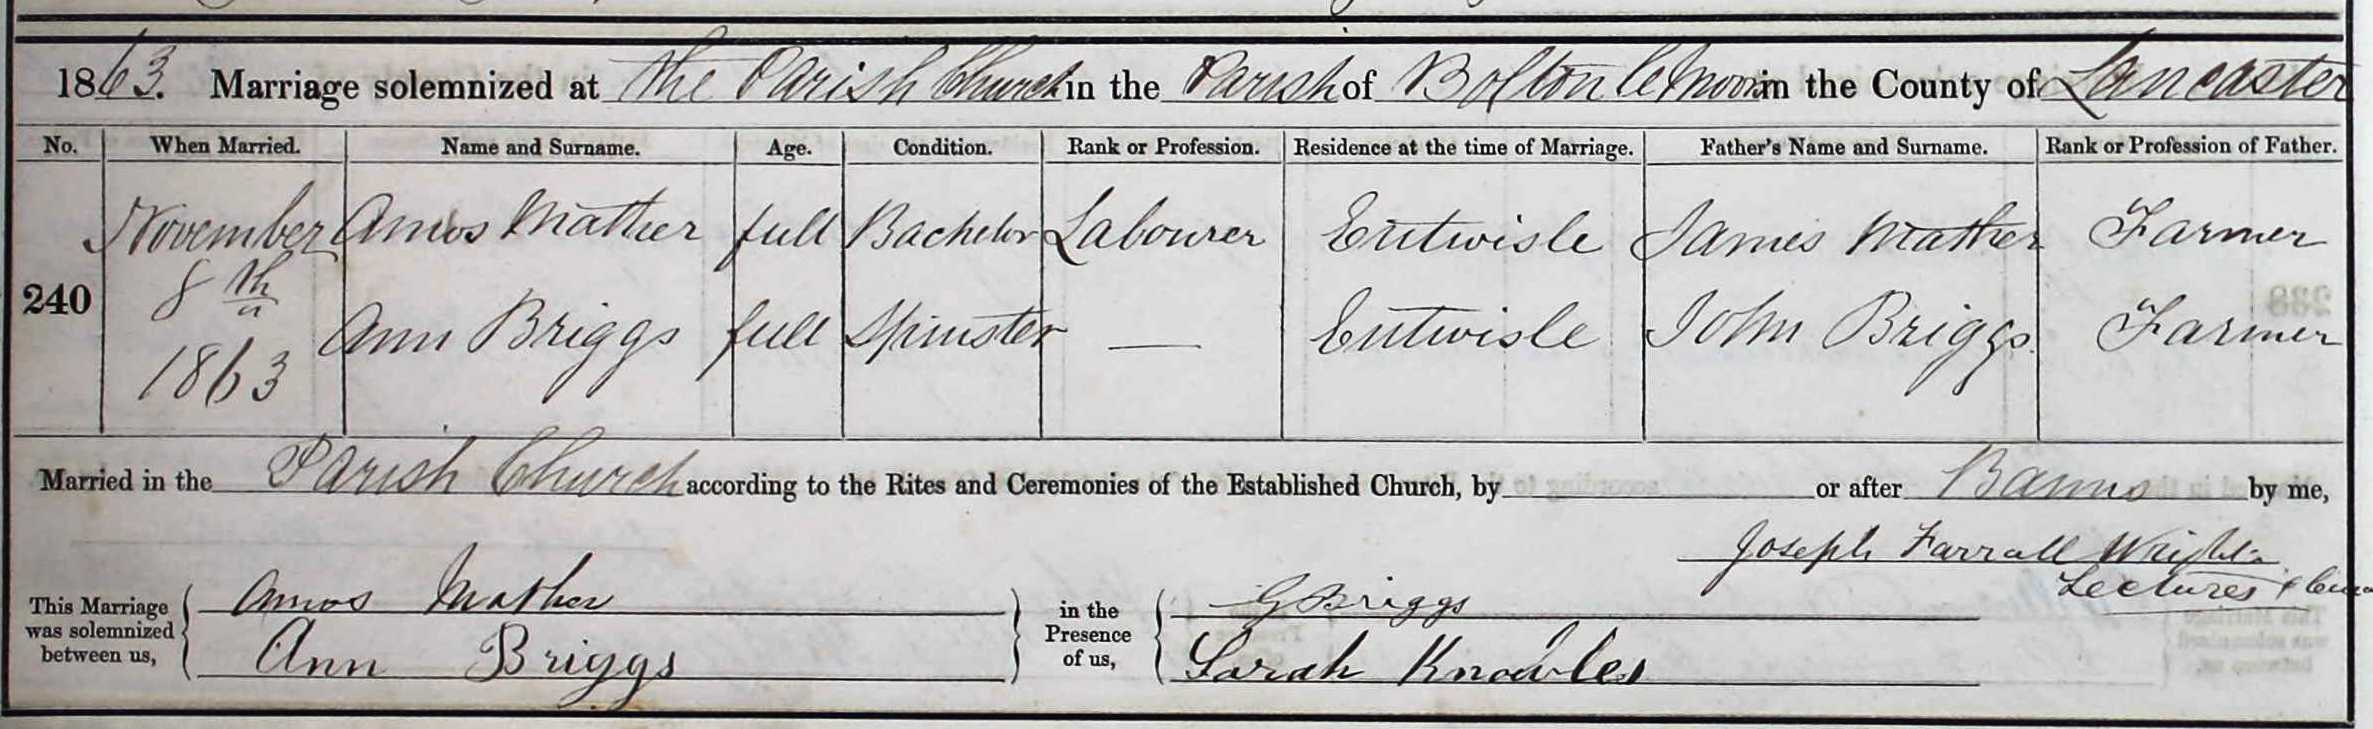 1863. Marriage solemnized at the Parish Church in the Parish of Bolton le Moors in the County of Lancaster
No. When Married. Name and Surname. Age. Condition. Rank or Profession. Residence at the time of Marriage. Father's Name and Surname. Rank or Profession of Father.
November Amos Mather full Bachelor Labourer Entwisle James Mather Farmer
240 8th
Ann Briggs full Spinster — Entwisle John Briggs Farmer
1863
Married in the Parish Church according to the Rites and Ceremonies of the Established Church, by or after Banns by me,
Joseph Farrall Wright
Lecturer &
This Marriage was solemnized between us,
Amos Mather
Ann Briggs
in the Presence of us,
G Briggs
Sarah Knowles